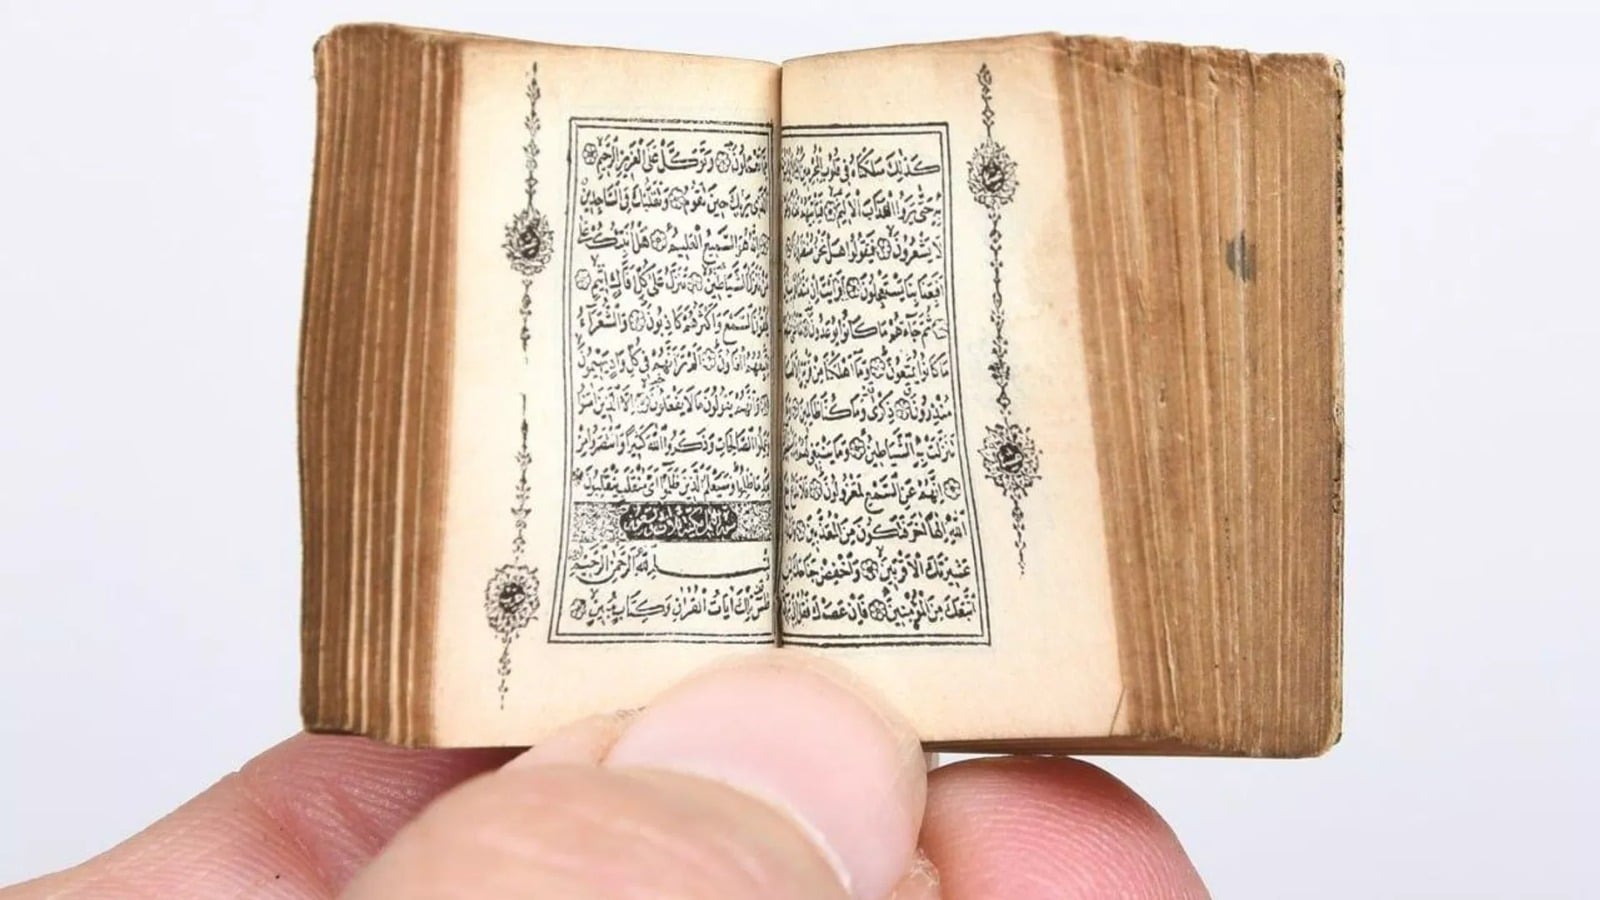 كَذٰلِكَ سَلَكْنَاهُ فِي قُلُوبِ الْمُجْرِمِينَ
بِهِ حَتَّى يَرَوُا الْعَذَابَ الْأَلِيمَ فَيَأْتِيَهُمْ
لَا يَشْعُرُونَ فَيَقُولُوا هَلْ نَحْنُ
أَفَبِعَذَابِنَا يَسْتَعْجِلُونَ أَفَرَأَيْتَ إِنْ
ثُمَّ جَاءَهُمْ مَا كَانُوا يُوعَدُونَ
مَا كَانُوا يُمَتَّعُونَ وَمَا أَهْلَكْنَا مِنْ قَرْيَةٍ
مُنْذِرُونَ ذِكْرَى وَمَا كُنَّا ظَالِمِينَ
تَنَزَّلَتْ بِهِ الشَّيَاطِينُ وَمَا يَنْبَغِي لَهُمْ
إِنَّهُمْ عَنِ السَّمْعِ لَمَعْزُولُونَ فَلَا
اللّٰهِ إِلٰهًا آخَرَ فَتَكُونَ مِنَ الْمُعَذَّبِينَ
عَشِيرَتَكَ الْأَقْرَبِينَ وَاخْفِضْ جَنَاحَكَ
اتَّبَعَكَ مِنَ الْمُؤْمِنِينَ فَإِنْ عَصَوْكَ فَقُلْ
تَعْمَلُونَ وَتَوَكَّلْ عَلَى الْعَزِيزِ الرَّحِيمِ
الَّذِي يَرَاكَ حِينَ تَقُومُ وَتَقَلُّبَكَ فِي السَّاجِدِينَ
إِنَّهُ هُوَ السَّمِيعُ الْعَلِيمُ هَلْ أُنَبِّئُكُمْ عَلَى
مَنْ تَنَزَّلُ الشَّيَاطِينُ تَنَزَّلُ عَلَى كُلِّ أَفَّاكٍ أَثِيمٍ
يُلْقُونَ السَّمْعَ وَأَكْثَرُهُمْ كَاذِبُونَ وَالشُّعَرَاءُ
يَتَّبِعُهُمُ الْغَاوُونَ أَلَمْ تَرَ أَنَّهُمْ فِي كُلِّ وَادٍ يَهِيمُونَ
وَأَنَّهُمْ يَقُولُونَ مَا لَا يَفْعَلُونَ إِلَّا الَّذِينَ آمَنُوا
وَعَمِلُوا الصَّالِحَاتِ وَذَكَرُوا اللّٰهَ كَثِيرًا وَانْتَصَرُوا مِنْ
بَعْدِ مَا ظُلِمُوا وَسَيَعْلَمُ الَّذِينَ ظَلَمُوا أَيَّ مُنْقَلَبٍ يَنْقَلِبُونَ
سورة النمل مكية ثلاث وتسعون
بِسْمِ اللّٰهِ الرَّحْمٰنِ الرَّحِيمِ
طٰسٓ تِلْكَ آيَاتُ الْقُرْآنِ وَكِتَابٍ مُبِينٍ